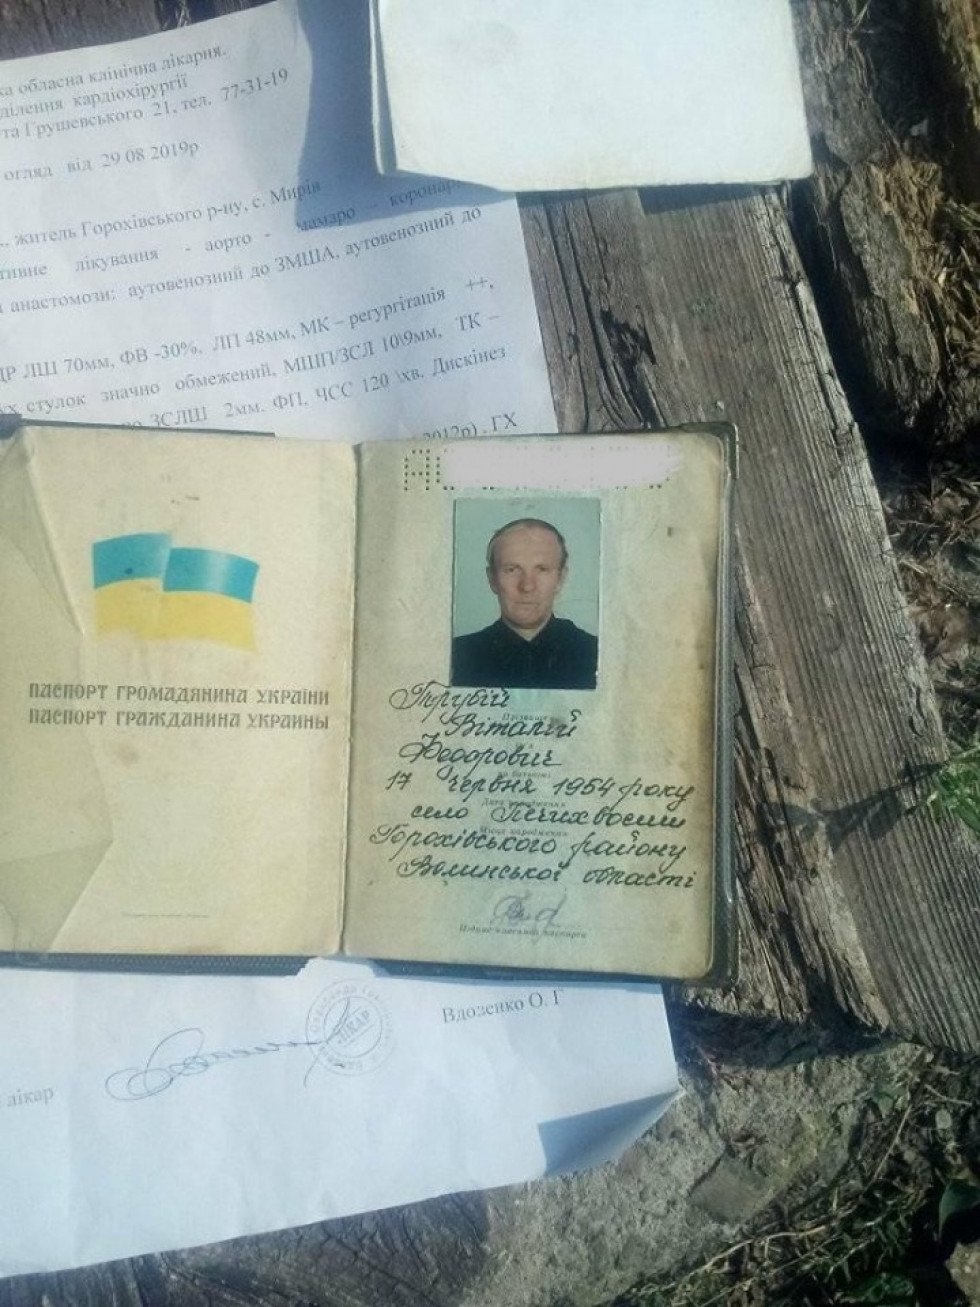 ка обласна клінічна лікарня.
ділення кардіохірургії
та Грушевського 21, тел. 77-31-19
огляд від 29 08 2019р
житель Горохівського р-ну, с. Мирів
тивне лікування - аорто - мамаро - коронар
анастомози: аутовенозний до ЗМША, аутовенозний до
ДР ЛШ 70мм, ФВ -30%, ЛП 48мм, МК – регургітація ++,
стулок значно обмежений, МШП/ЗСЛ 10\9мм, ТК –
ЗСЛШ 2мм. ФП, ЧСС 120 \хв. Дискінез
2012р) , ГХ
ПАСПОРТ ГРОМАДЯНИНА УКРАЇНИ
ПАСПОРТ ГРАЖДАНИНА УКРАИНЫ
Трубій
Прізвище
Віталій
Федорович
17 червня 1954 року
Дата народження
село Печихвости
Місце народження
Горохівського району
Волинської області
Підпис власника паспорта
Вдозенко О. Г
ЛІКАР
лікар